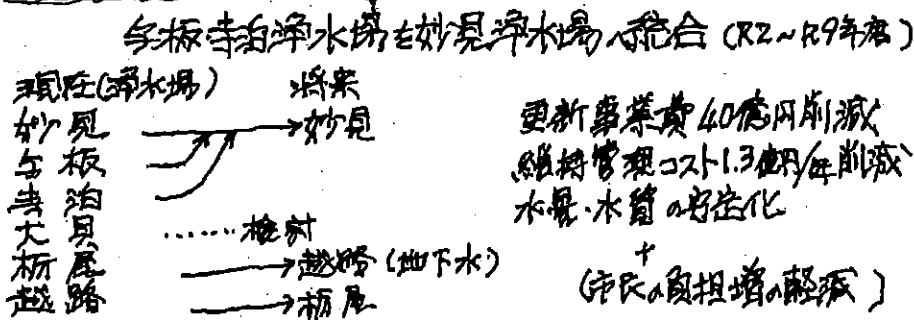 与板寺泊浄水場を妙見浄水場へ統合(R2~R9年度)
現在(浄水場) 将来
妙見 妙見
与板
寺泊
大貝 ……検討
栃尾 越路(地下水)
越路 栃尾
更新事業費40億円削減
維持管理コスト1.3億円/年削減
水量・水質の安定化
+
(市民の負担増の軽減)